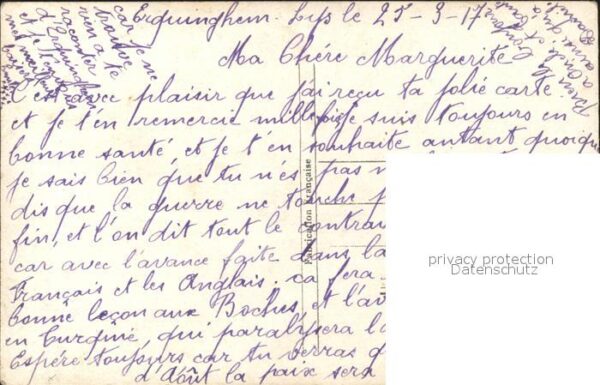 Erquinghem-Lys le 25-3-17
Ma Chère Marguerite
C'est avec plaisir que j'ai reçu ta jolie carte
et je t'en remercie mille fois je suis toujours en
bonne santé, et je t'en souhaite autant quoique
je sais bien que tu n'es pas
dis que la guerre ne touche
fin, et l'on dit tout le contrai
car avec l'avance faite dans la
Français et les Anglais. ça fera
bonne leçon aux Boches, et l'av
en turquie, qui paralysera l
Espère toujours car tu verras q
d'Août la paix sera
car je ne
trouve
rien a te
raconter
d'Erquinghem
et je
Fabrication Française
privacy protection
Datenschutz